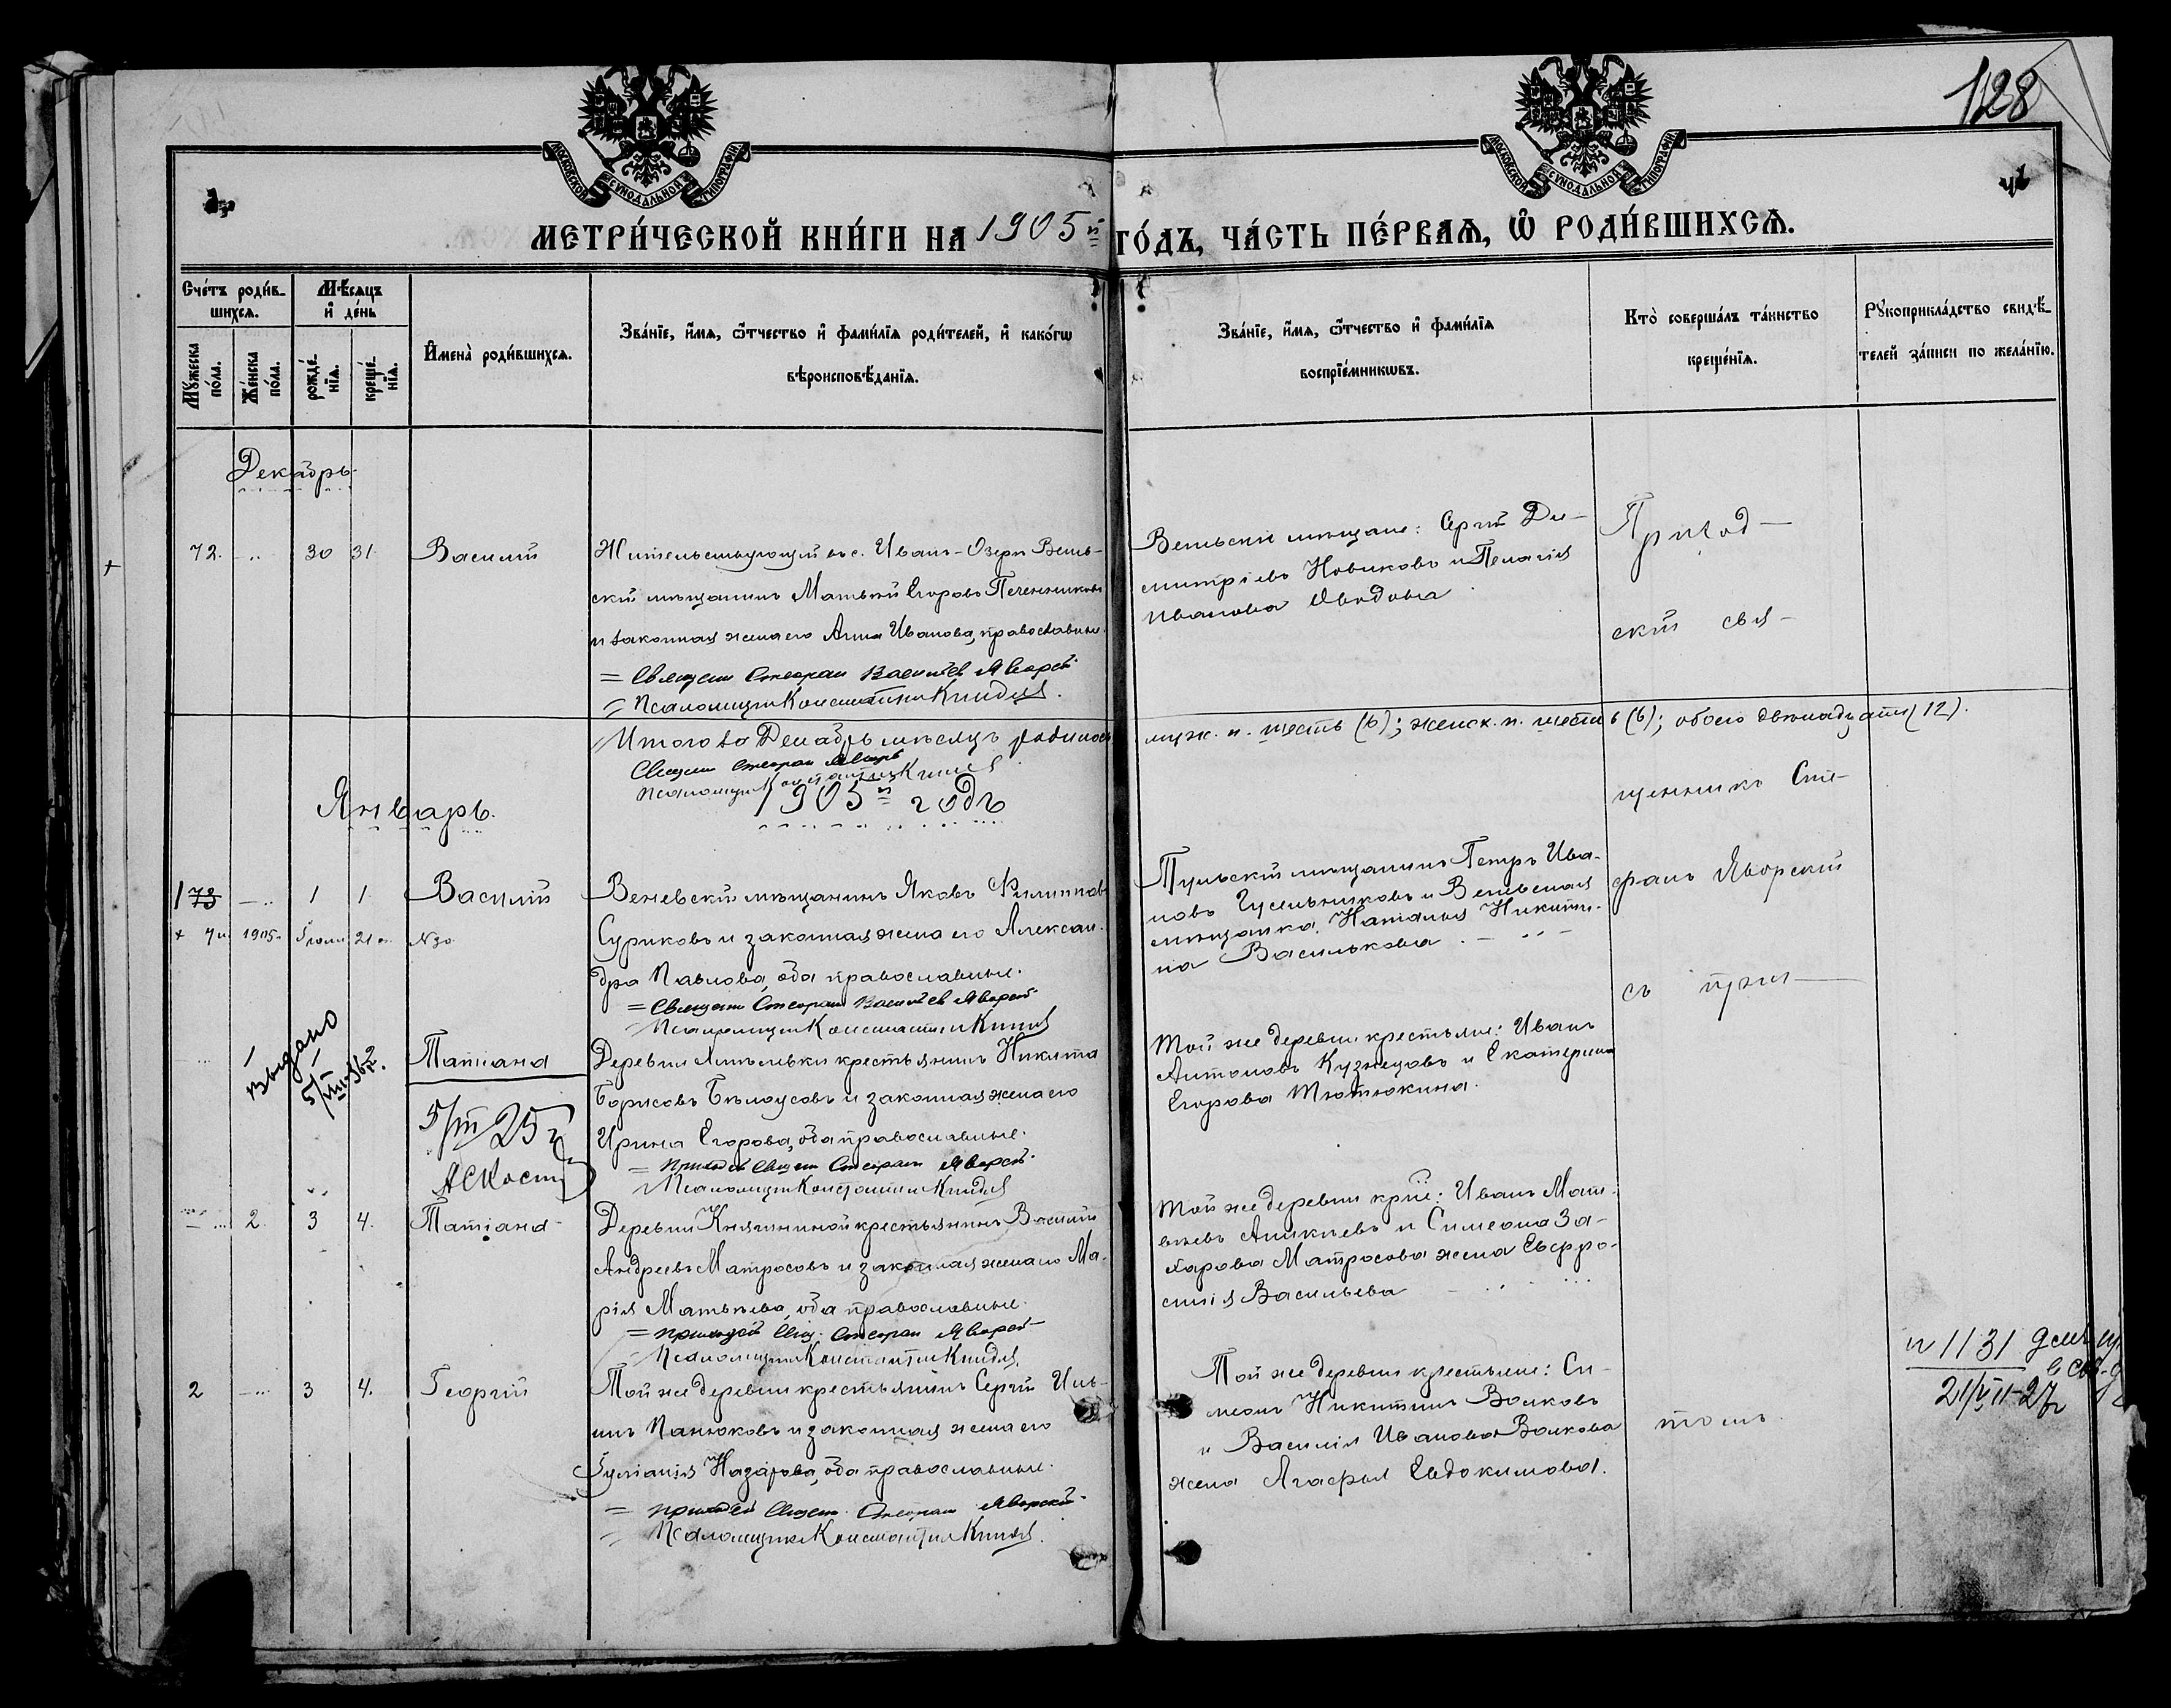 128
МОСКОВСКОЙ СУНОДАЛЬНОЙ ТИПОГРАФІИ
МОСКОВСКОЙ СУНОДАЛЬНОЙ ТИПОГРАФІИ
МЕТРИ́ЧЕСКОЙ КНИ́ГИ НА 1905й ГО́ДЪ, ЧА́СТЬ ПЕ́РВАѦ, Ѽ РОДИ́ВШИХСѦ.
Сче́тъ роди́в-
шихсѧ.
Мѣсяцъ
и҆ де́нь
Мꙋжеска по́ла.
Же́нска по́ла.
рожде́нїѧ.
креще́нїѧ.
И҆мена̀ роди́вшихсѧ.
Зва́нїе, и҆́мѧ, ѻ҆́тчество и҆ фами́лїѧ роди́телей, и҆ како́гѡ
вѣроисповѣ́данїѧ.
Зва́нїе, и҆́мѧ, ѻ҆́тчество и҆ фами́лїѧ
воспрїе́мникѡвъ.
Кто̀ соверша́лъ та́инство
креще́нїѧ.
Рꙋкоприкла́дство свидѣ́-
телей за́писи по жела́нїю.
Декабрь
72. 30 31 Василій
Жительствующій въ с. Иванъ-Озеры Венев-
скій мѣщанинъ Матвѣй Егоровъ Печенниковъ
и законная жена его Анна Иванова, православные.
= Священ Стефан Васильев Яворскій
= Псаломщик Константин
Веневскіе мѣщане: Сергій Ди-
митріевъ Новиковъ и Пелагія
Иванова
Приход-
скій свя-
Итого въ Декабрѣ мѣсяцѣ родилось муж. п. шесть (6); женск. п. шесть (6); обоего двѣнадцать (12).
Священ Стефан Яворскій
Псаломщик Константин
1905й годъ
Январь.
щенникъ Сте-
1 73 1 1 Василій
Веневскій мѣщанинъ Яковъ Филиповъ
Суриковъ и законная жена его Алексан-
дра Павлова, оба православные.
= Священ Стефан Васильев Яворскій
Псаломщик Константин
1905 21 N 30
Тульскій мѣщанинъ Петръ Ива-
новъ Гусельниковъ и Веневская
мѣщанка, Наталья Никити-
на Василькова
фанъ Яворскій
съ прич-
Выдано
5/III-36г.
Татіана
5/III 25г
Деревни крестьянинъ Никита
Борисовъ Бѣлоусовъ и законная жена его
Ирина Егорова, оба православные.
= Приход Свящ Стефан Яворскій
Псаломщик Константин
Той же деревни крестьяне: Иванъ
Антоновъ Кузнецовъ и Екатерина
Егорова Тютюкина.
2. 3 4. Татіана
Деревни Княгининой крестьянинъ Василій
Андреевъ Матросовъ и законная жена его Ма-
рія Матвѣева, оба православные.
= Приход Свящ. Стефан Яворскій
Псаломщик Константин
Той же деревни кр-не: Иванъ Мат-
вѣевъ Аникѣевъ и Симеона За-
харова Матросова жена Евфро-
синія Васильева
2 3 4. Георгій
Той же деревни крестьянинъ Сергій Иль-
инъ Панюковъ и законная жена его
Іуліанія Назарова, оба православные.
= Приход Священ Стефан Яворскій
Псаломщик Константин
Той же деревни крестьяне: Си-
меонъ Никитинъ Волковъ
и Василія Иванова Волкова
жена Агафья Евдокимова.
томъ.
N 1131
21/VII-27г